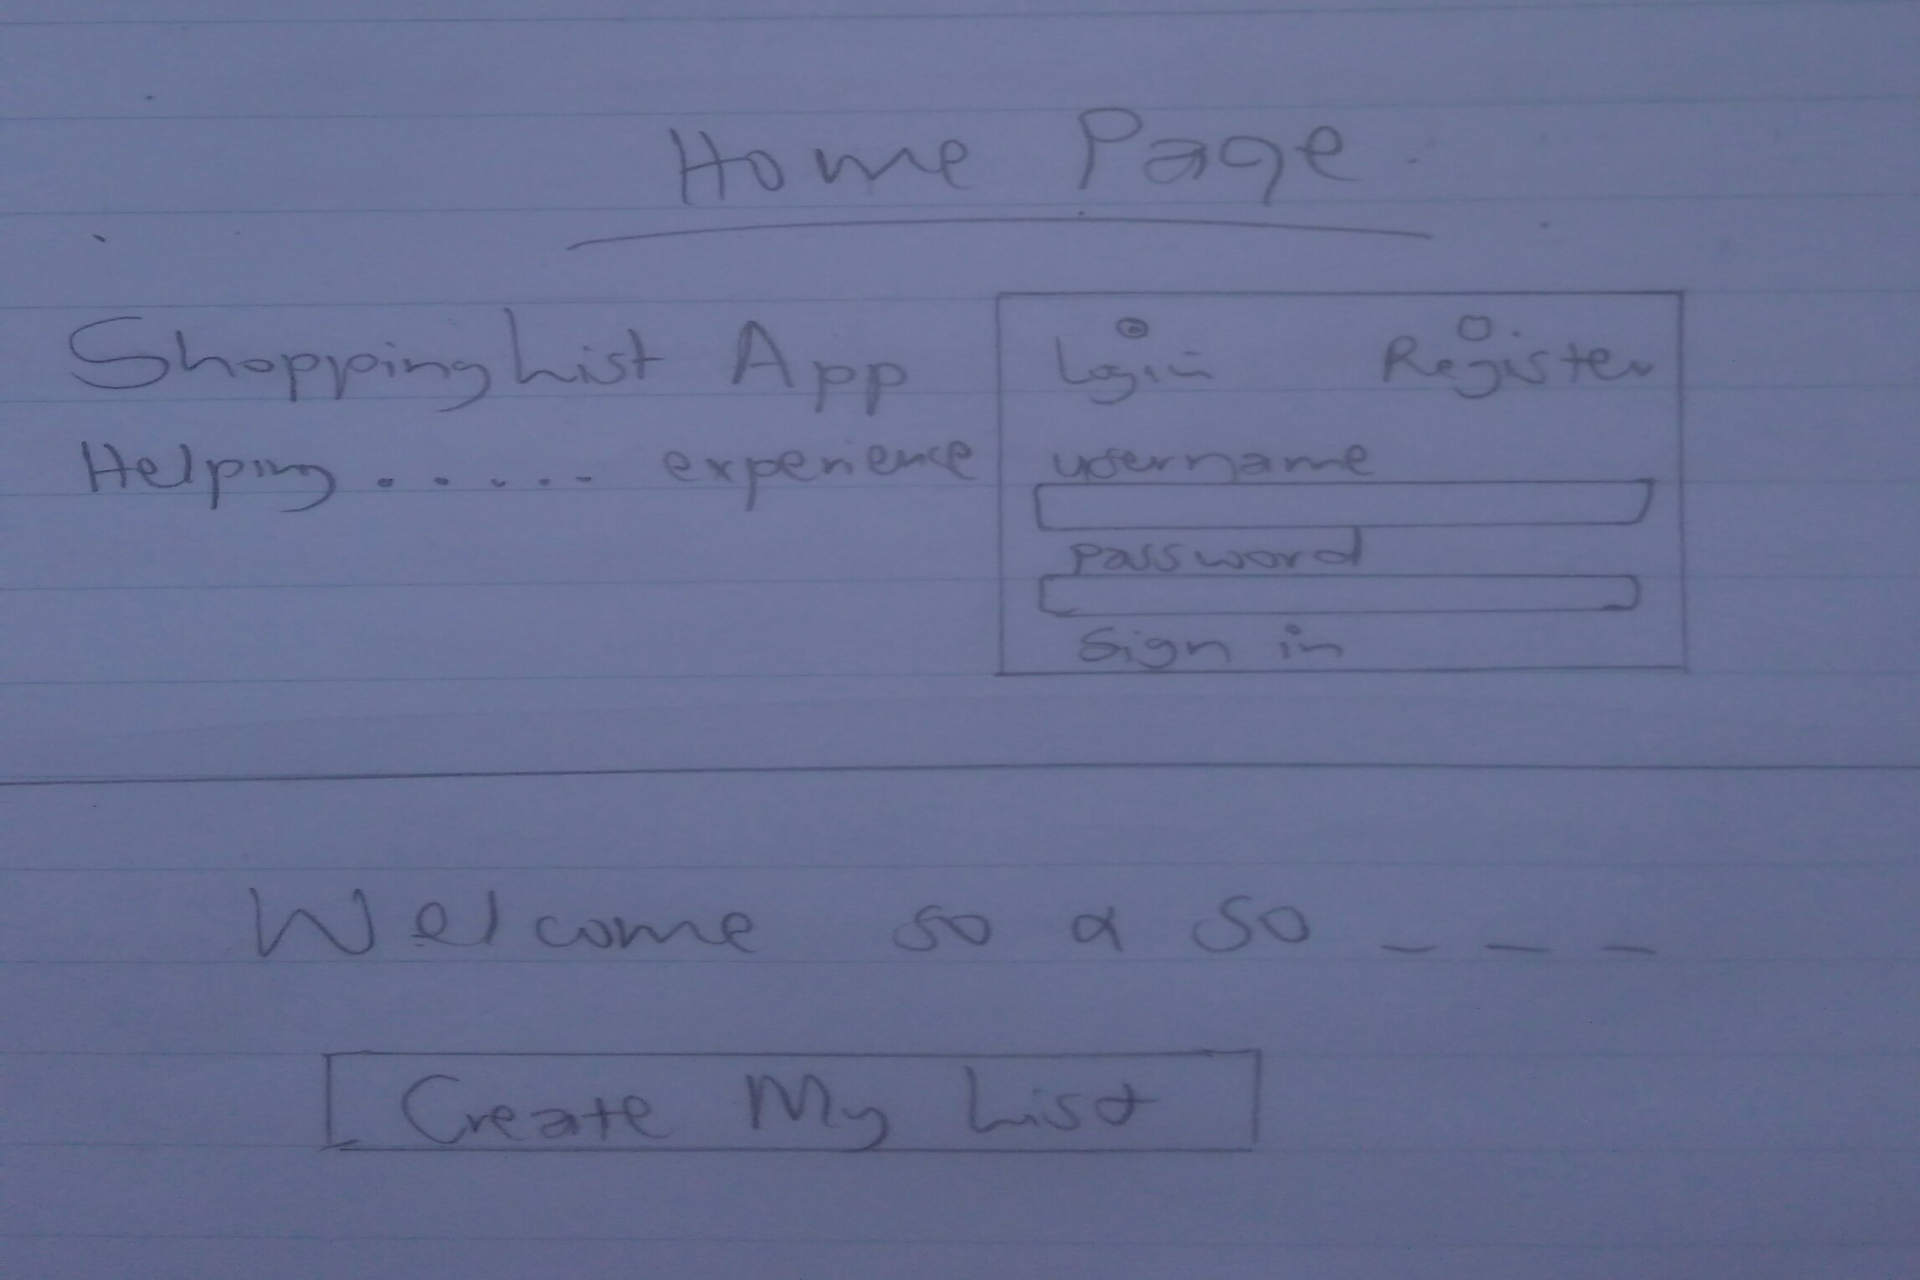 Home Page
Shopping List App
Helping ...... experience
Login Register
username
password
Sign in
Welcome so & so _ _ _
Create My List